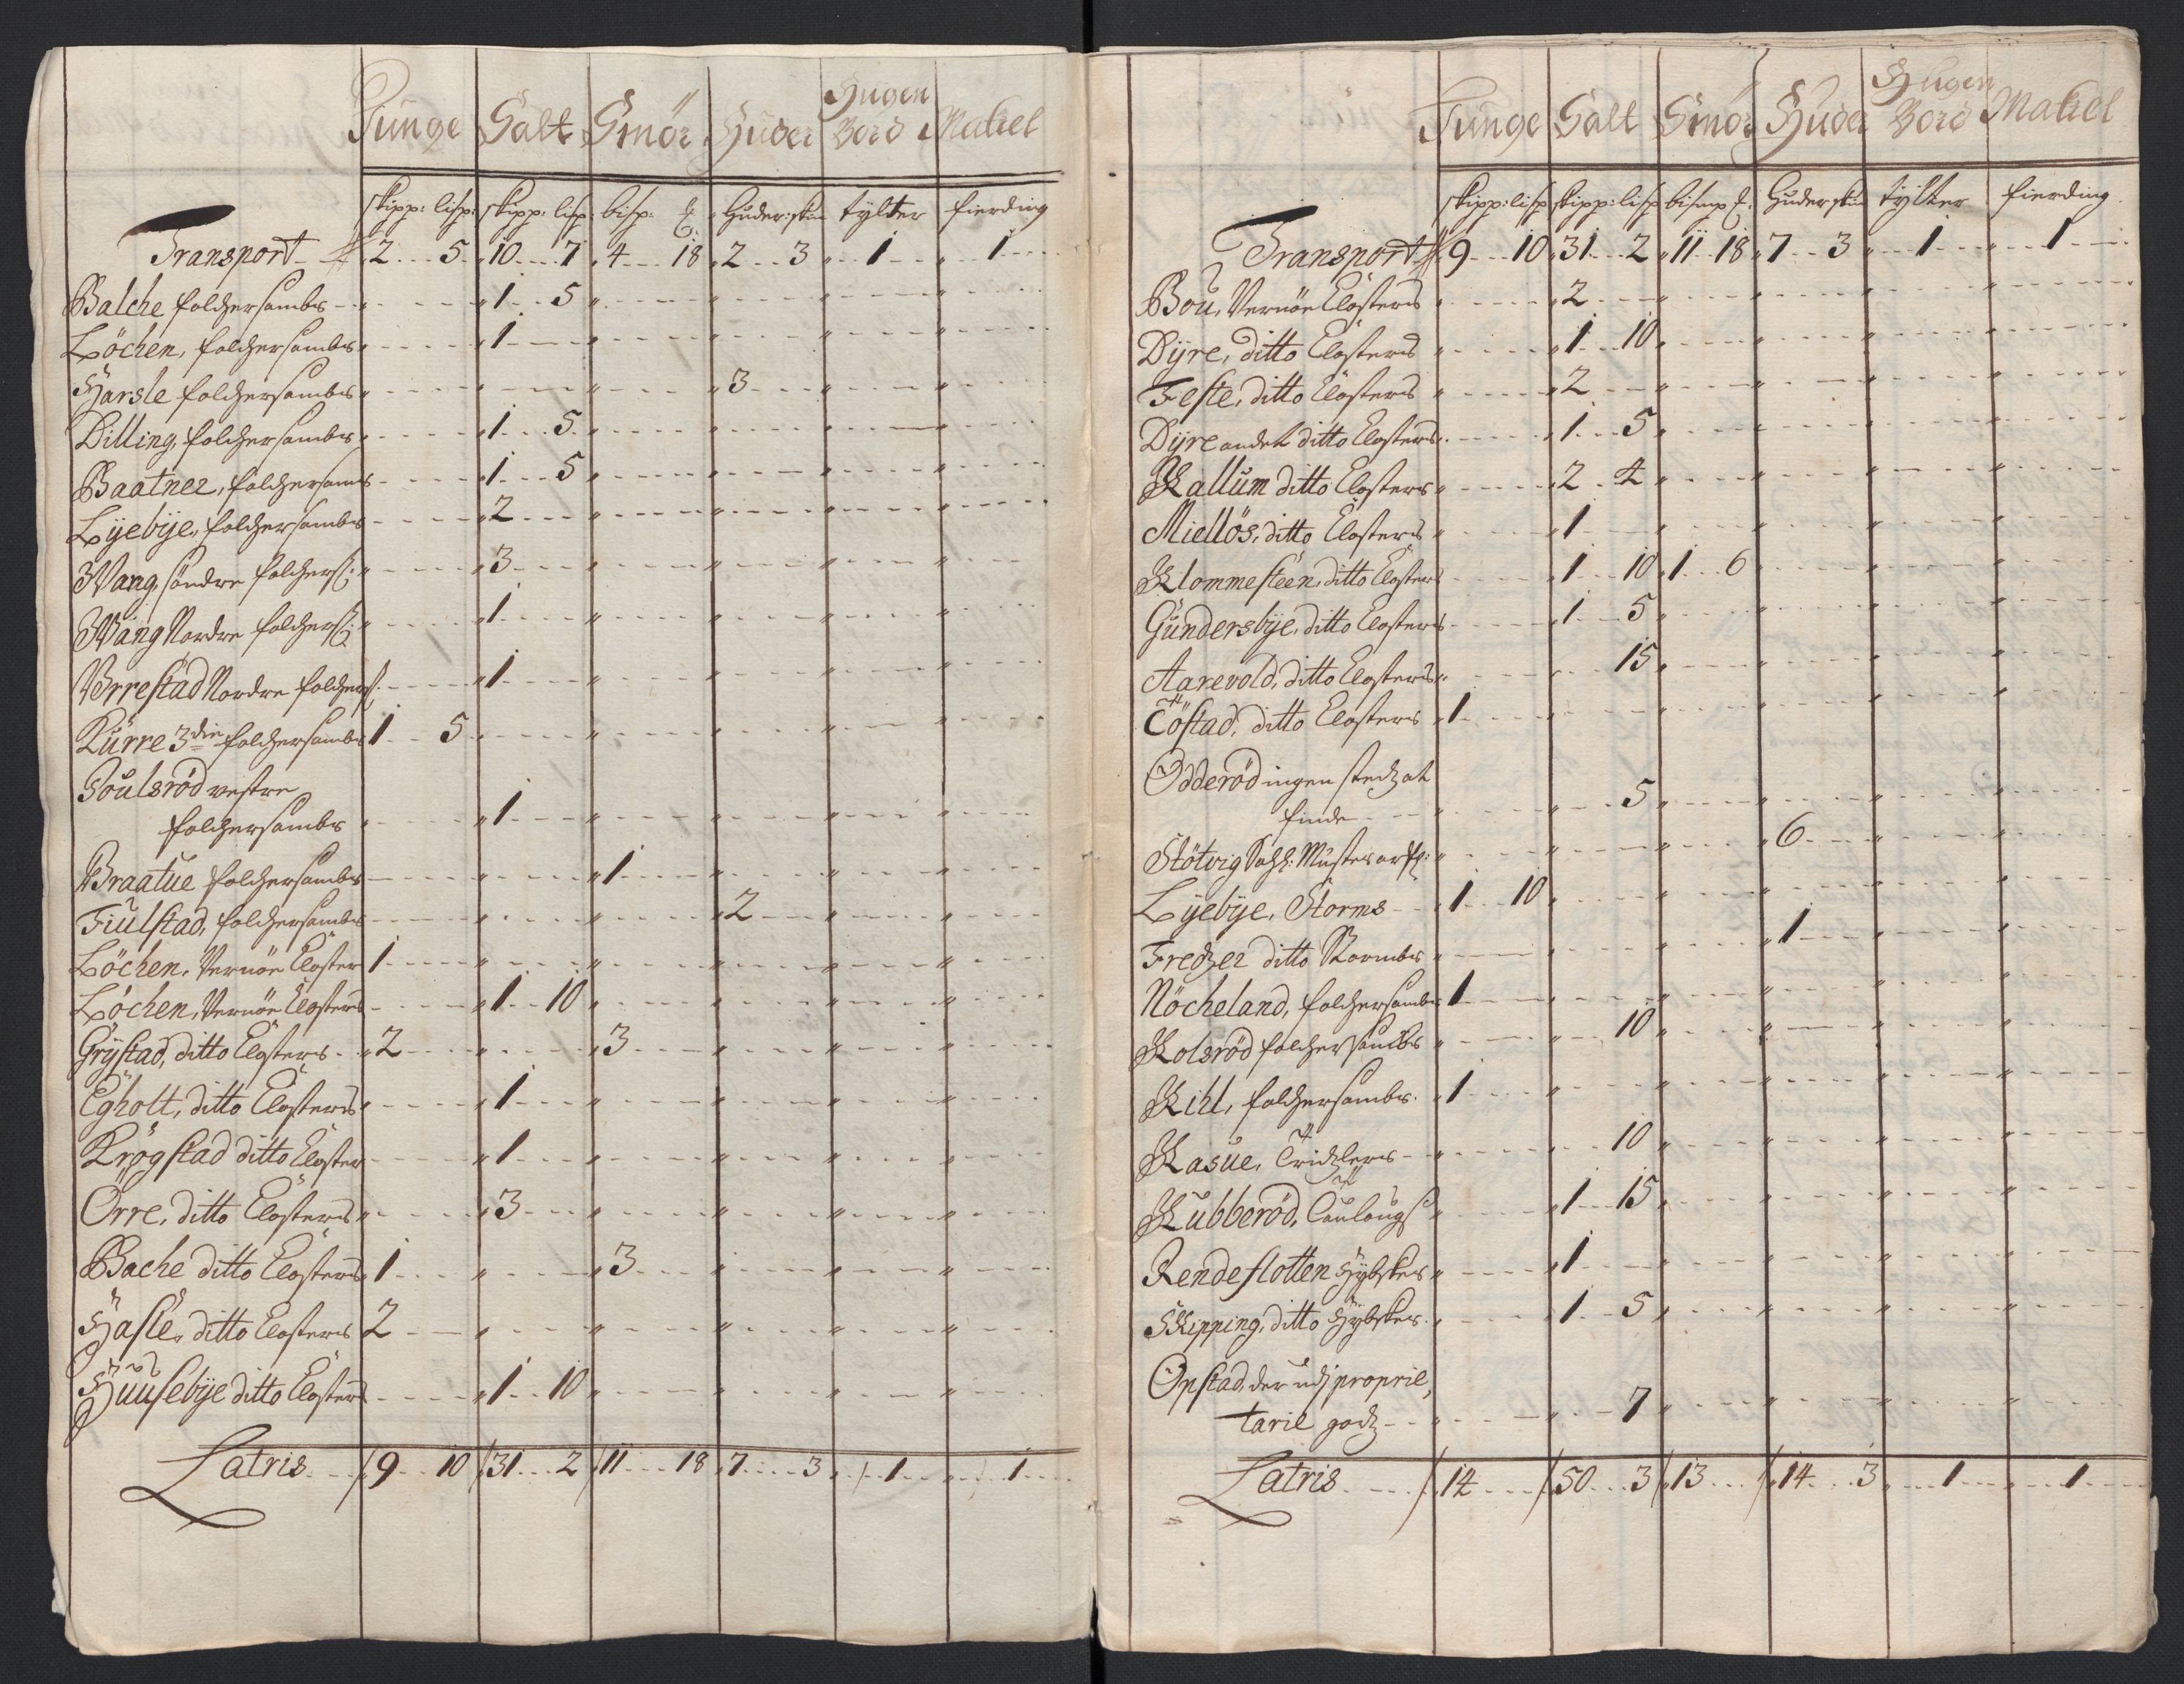 Tunge Salt Smör Huder Hugen Bord Makrel
skipp: lisp: skipp: lisp: bisp: Huder: skin tylter fierding
Transport 2 5 10 7 4 18 2 3 1 1
Balche folchersambs 1 5
Löchen, folchersambs 1
Harsle folchersambs 3
Dilling, folchersambs 1 5
Baatner, folchersambs 1 5
Lyebye, folchersambs 2
Wang, söndre folchers: 3
Wang Nordre folchers: 1
Werrestad Nordre folchers: 1
Kurre 3die folchersambs 1 5
Poulsröd vestre
folchersambs 1
Braatue folchersambs 1
Fiulstad, folchersambs 2
Löchen, Vernöe Closter 1
Löchen, Vernöe Closters 1 10
Grystad, ditto Closters 2 3
Egholt, ditto Closters 1
Krögstad ditto Closter 1
Örre, ditto Closters 3
Bache ditto Closters 1 3
Hasle, ditto Closters 2
Huusebye ditto Closters 1 10
Latris 9 10 31 2 11 18 7 3 1 1
Tunge Salt Smör Huder Hugen Bord Makel
skipp: lisp skipp: lisp bismp Huder skin tylter fierding
Transport 9 10 31 2 11 18 7 3 1 1
Bou, Vernöe Closters 2
Dyre, ditto Closters 1 10
Feste, ditto Closters 2
Dyre andet ditto Closters 1 5
Kallum ditto Closters 2 4
Miellös, ditto Closters 1
Klommesteen, ditto Closters 1 10 1 6
Gundersbye, ditto Closters 1 5
Aarevold, ditto Closters 15
Töstad, ditto Closters 1
Odderöd ingen stedz at
finde 5
Stötvig 6
Lyebye, Storms 1 10
Fredzer ditto Stormbs 1
Nöcheland, folchersambs 1
Kolsröd folchersambs 10
Kihl, folchersambs 1
Kasue, 10
Kubberöd, 1 15
Rendeflotten Hybskes 1
Skipping, ditto Hybskes 1 5
Opstad, der udj proprie,
tarie godz 7
Latris 14 50 3 13 14 3 1 1